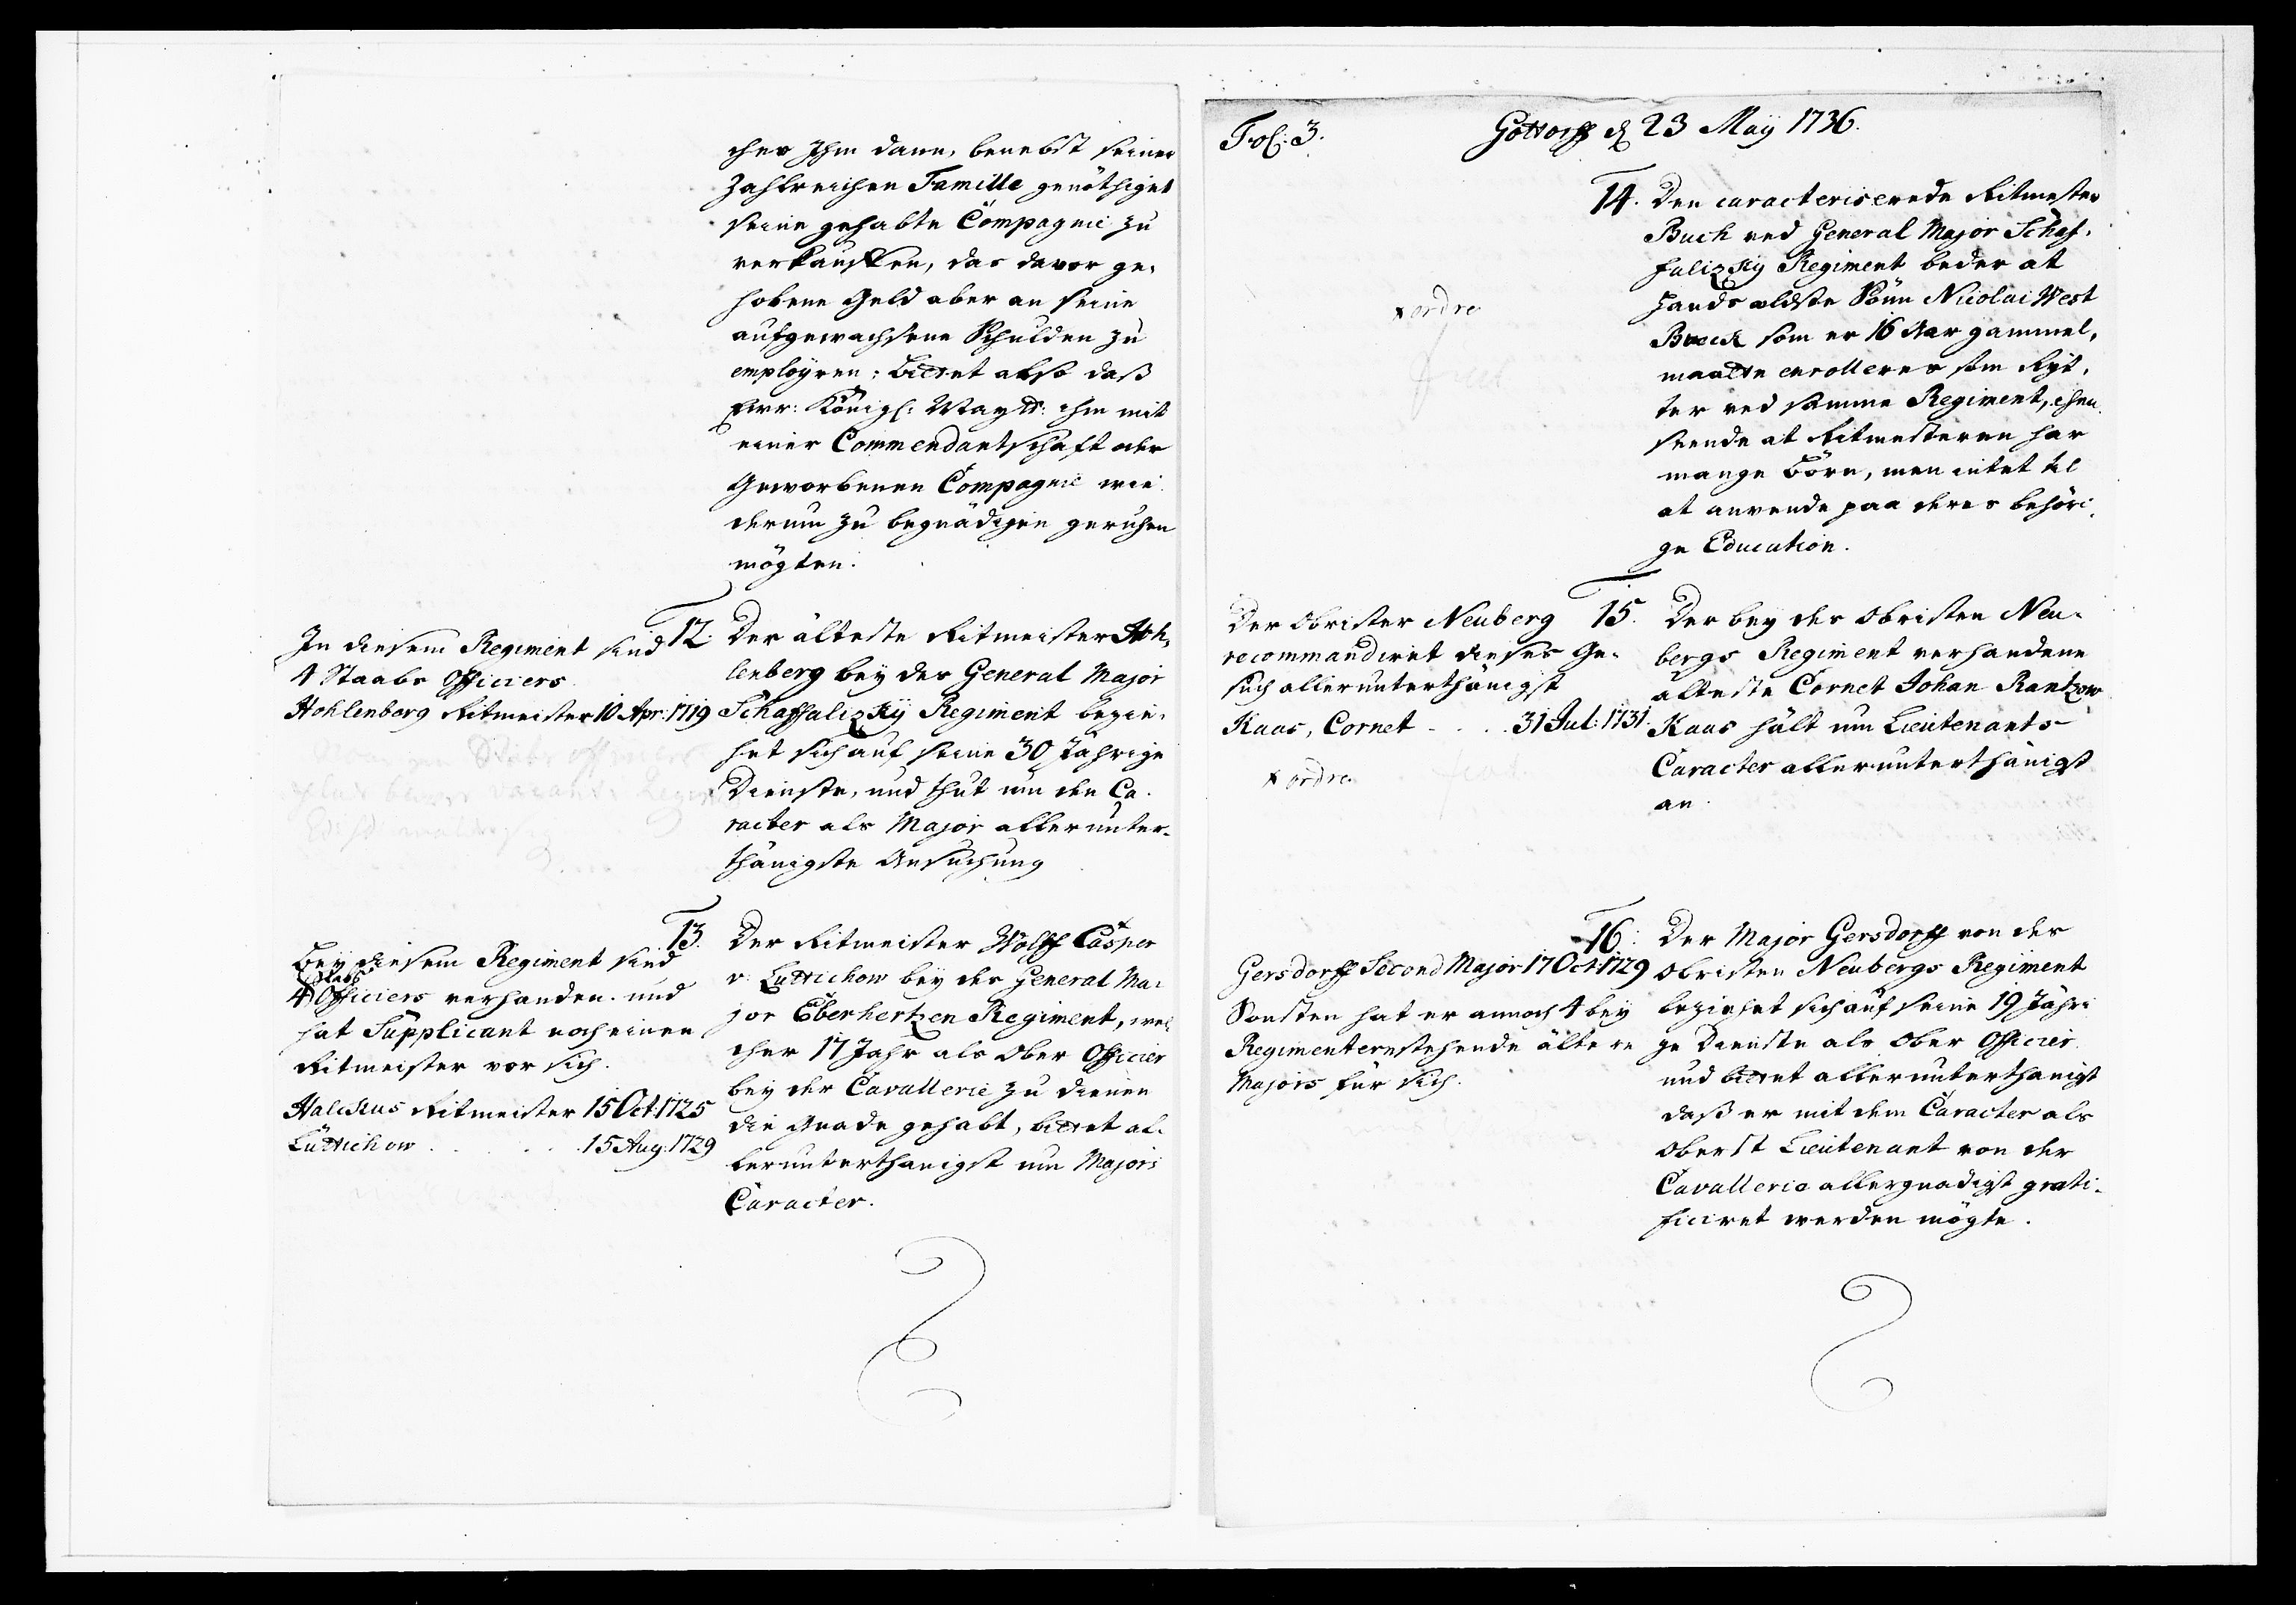 cher Ihm dann, benebst seiner
Zahlreichen Famille genöthiget
seine gehabte Compagnie zu
verkauffen, das davor ge-
hobene Geld aber an seine
aufgewachsene Schulden zu
employren: bittet also daß
Ewr: Königl: Maytt: ihm mit
einer Commendantschaft oder
Geworbenen Compagnie wie
derum zu begnädigen geruhen
mögten.
In diesem Regiment sind
4 Staabs Officiers
Hohlenberg Ritmeister 10 Apr: 1719
12. Der älteste Ritmeister Hoh-
lenberg bey des General Major
Schaffalizky Regiment bezie-
het sich auf seine 30 Jährige
Dienste, und thut um den Ca-
racter als Major allerunter-
thänigste Ansuchung
Bey diesem Regiment sind
Stabs
4 Officiers verhanden und
hat Supplicant noch einen
Ritmeister vor sich.
Halckus Ritmeister 15 Oct: 1725
Lüttichow . . . . 15 Aug: 1729
13. Der Ritmeister Wolff Casper
v: Lüttichow bey des General Ma-
jor Eberhertzen Regiment, wel-
cher 17 Jahr als Ober Officier
bey der Cavallerie zu dienen
die Gnade gehabt, bittet al-
lerunterthänigst um Majors
Caracter.
Fol: 3. Gottorff d 23 Maÿ 1736.
14. Den caracteriserede Ritmester
Buch ved General Major Schaf-
falizky Regiment beder at
hands ældste Sönn Nicolai West
Buch som er 16 Aar gammel,
maatte enrolleres som Ryt-
ter ved samme Regiment, hen-
seende at Ritmesteren har
mange börn, men intet til
at anvende paa deres behöri-
ge Education.
ordre
Der Obrister Neuberg
recommandiret dieses Ge-
such allerunterthänigst
Kaas, Cornet . . . 31 Jul: 1731.
ordre
15. Der bey des Obristen Neu-
bergs Regiment verhandene
älteste Cornet Johan Rantzow
Kaas hält um Lieutenants
Caracter allerunterthänigst
an.
Gersdorff Second Major 17 Oct: 1729
Sonsten hat er annoch 4 bey
Regimentern stehende ältere
Majors für sich.
16. Der Major Gersdorff von des
Obristen Neubergs Regiment
beziehet sich auf seine 19 Jähri
ge Dienste als Ober Officier
und bittet allerunterthänigst
daß er mit dem Caracter als
Oberst Lieutenant von der
Cavallerie allergnädigst grati-
ficiret werden mögte.